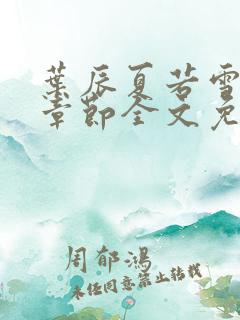 葉辰夏若雪
章節全文免
周郁鴻
未经同意禁止转载